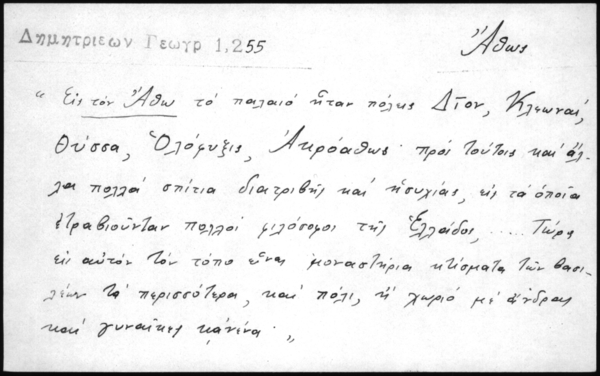 Δημητριεων Γεωγρ 1,255
Ἄθως
“ Εἰς τὸν Ἄθω τὸ παλαιὸ ἦταν πόλες Δῖον, Κλεωναί,
Θύσσα, Ὀλόφυξις, Ἀκρόαθως· πρὸς τούτοις καὶ ἄλ-
λα πολλὰ σπίτια διατριβῆς καὶ ἡσυχίας, εἰς τὰ ὁποῖα
ἐτραβιοῦνταν πολλοὶ φιλόσοφοι τῆς Ἑλλάδος, ..... Τώρα
εἰς αὐτὸν τὸν τόπο εἶναι μοναστήρια κτίσματα τῶν βασι-
λέων τὰ περισσότερα, καὶ πόλι, ἢ χωριὸ μὲ ἄνδρας
καὶ γυναῖκες κανένα· „